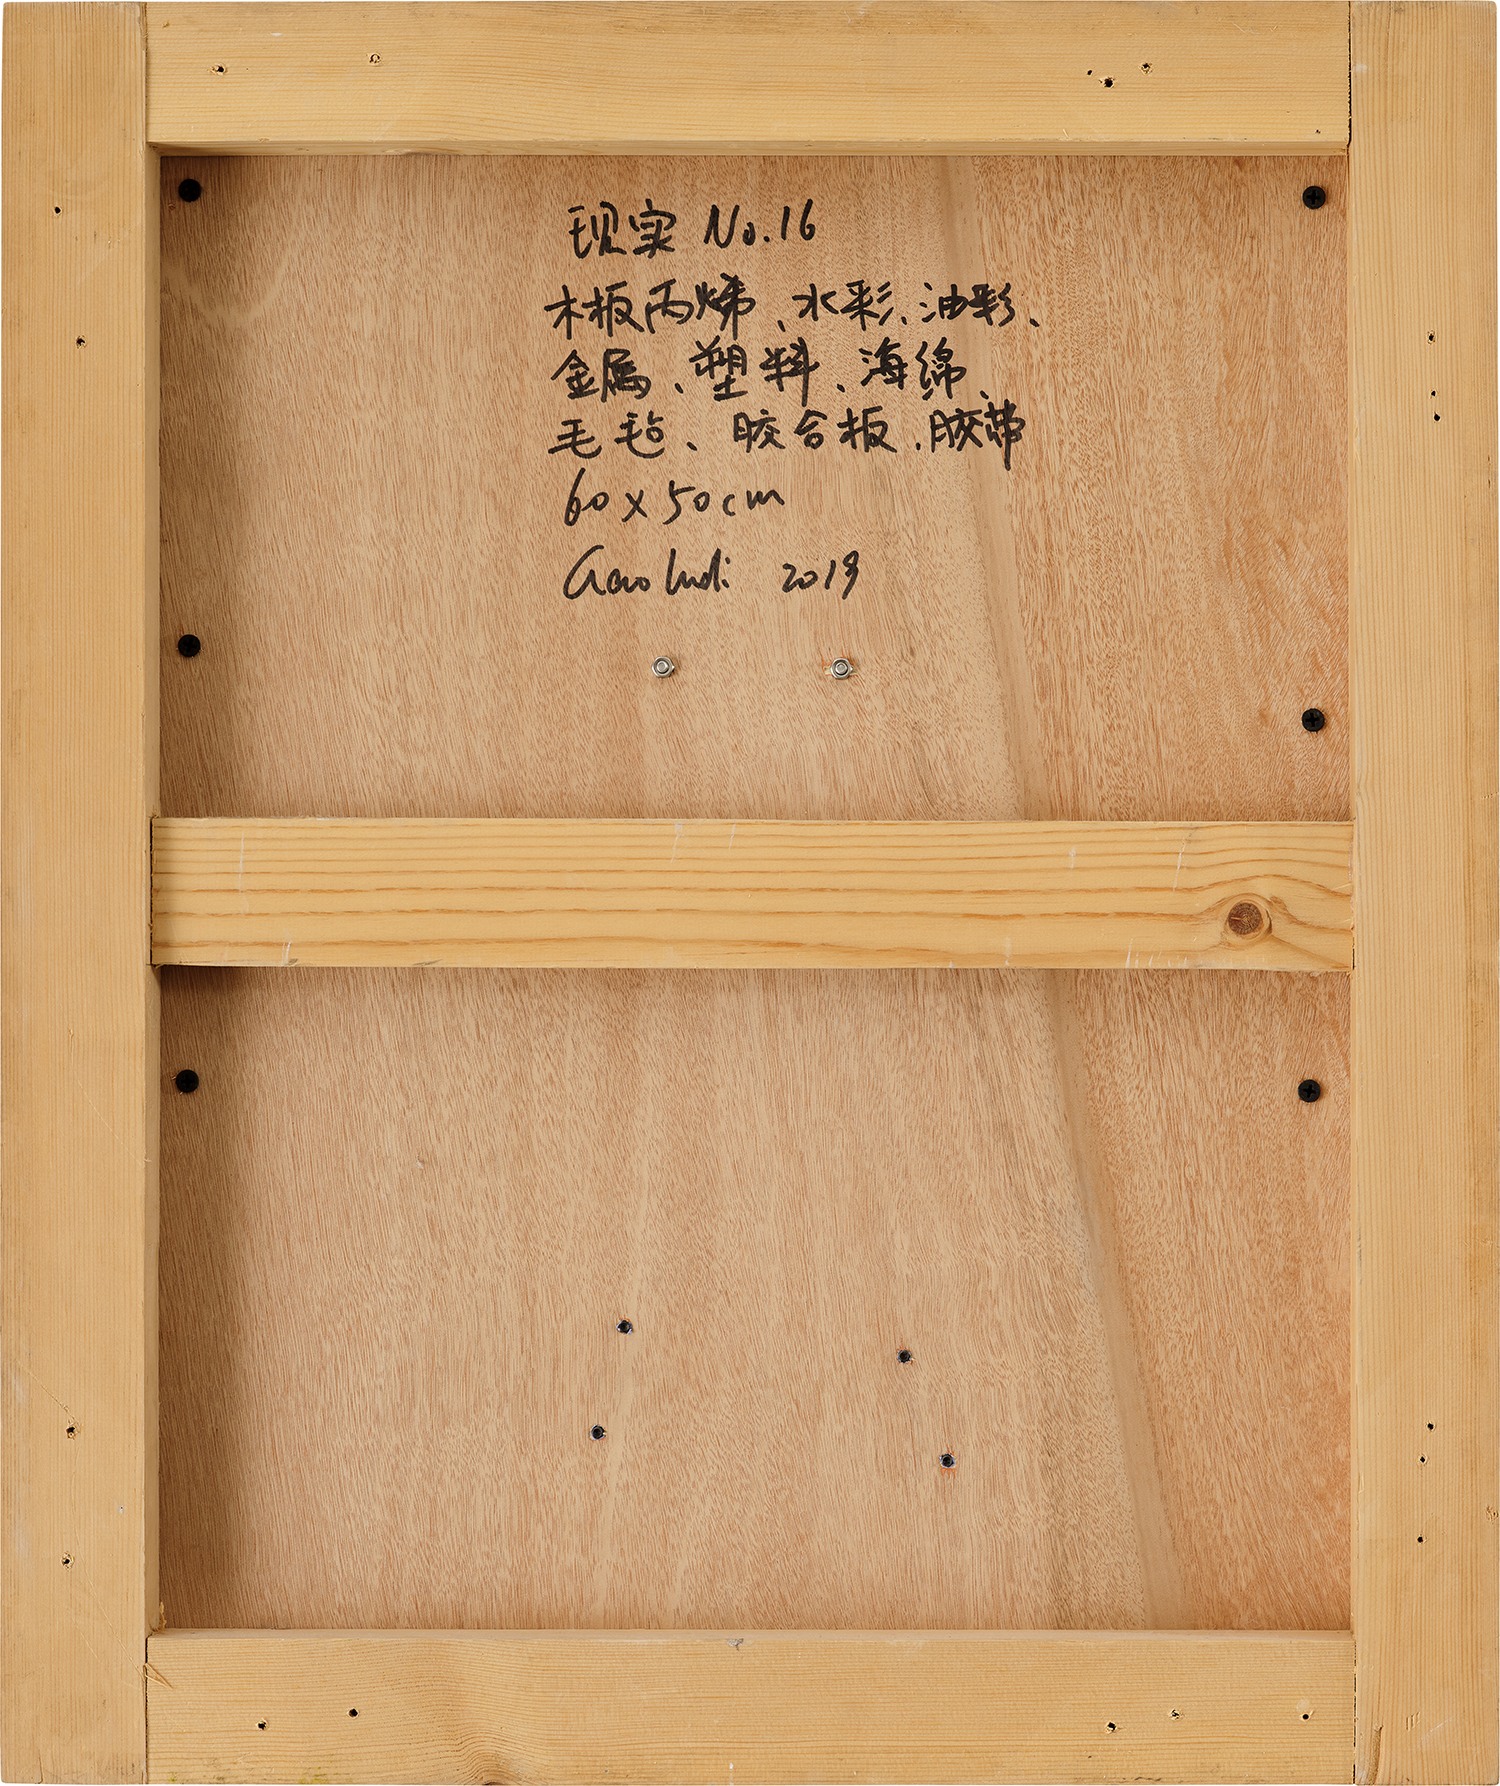 现实 No.16
木板丙烯、水彩、油彩、
金属、塑料、海绵、
毛毡、胶合板、胶带
60 x 50cm
Gao Ludi 2019